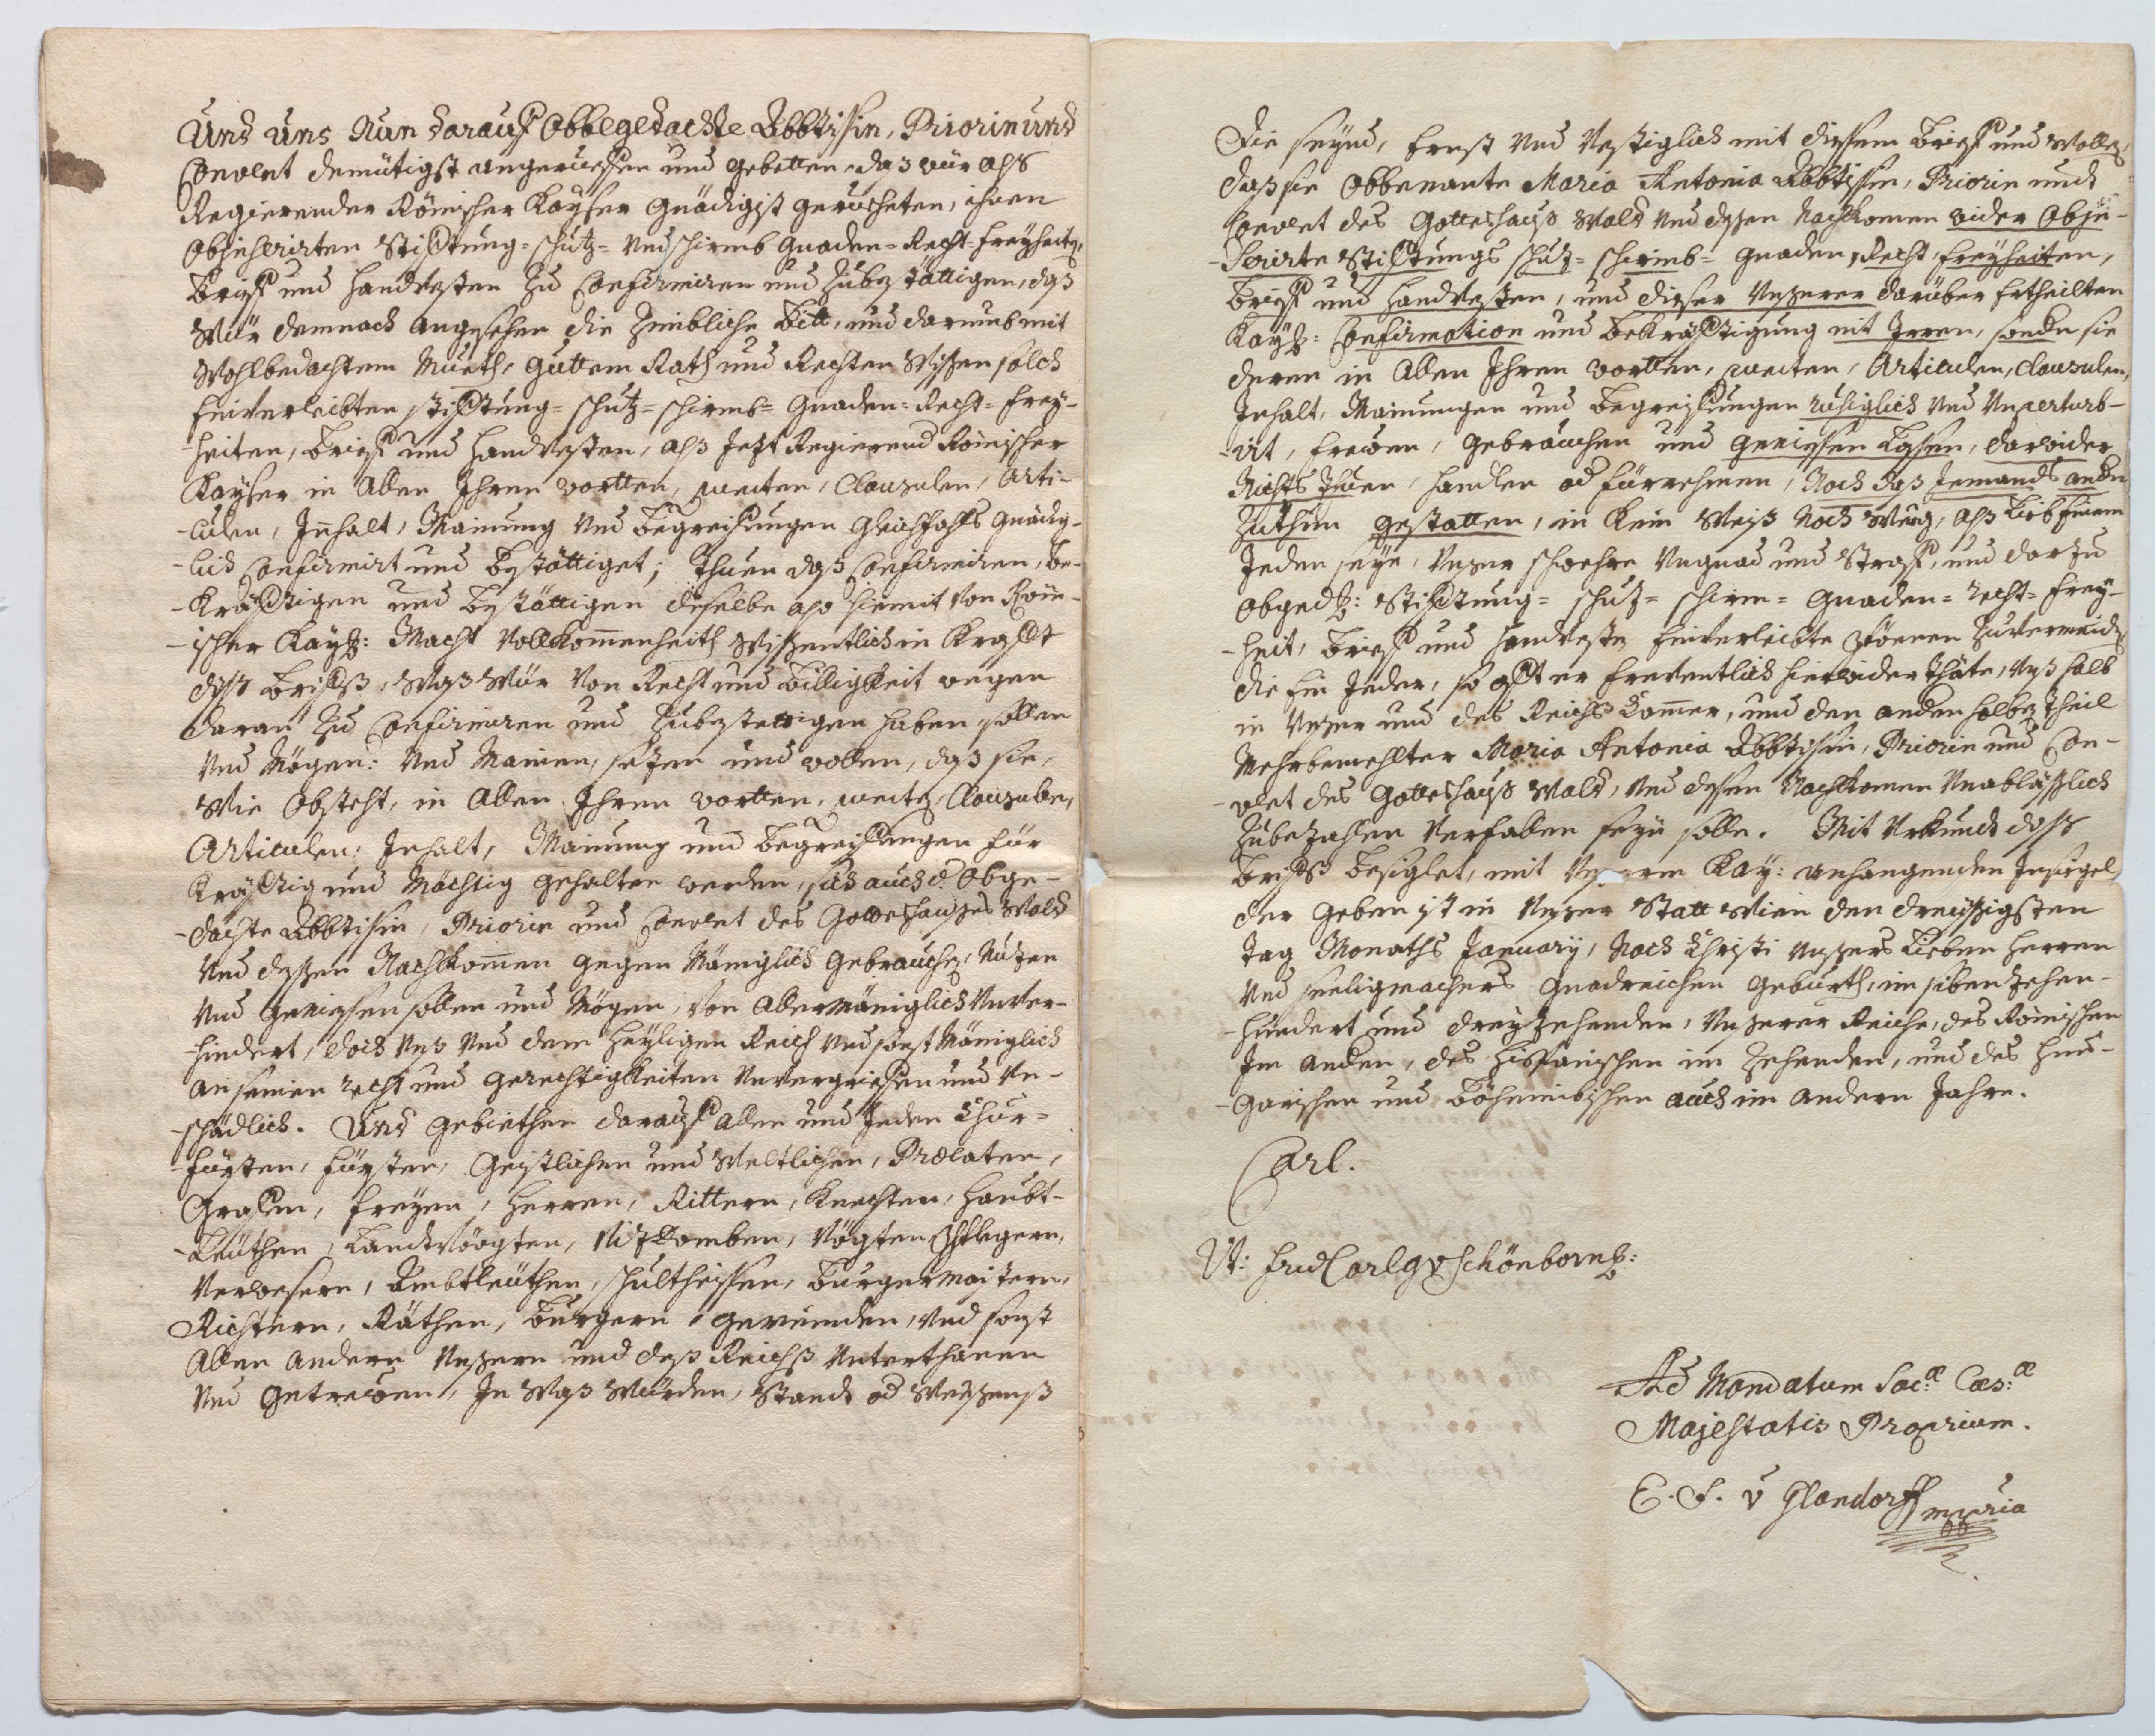 Und Uns Nun darauf Obbegedachte Äbbtissin, Priorin und
Convent demütigst angeruessen und gebetten, das wür alss
Regierender Römischer Kayser Gnädigist geruecheten, ihnen
obinserirten Stifftung- schutz- und schirmb Gnaden- Recht- freyheit,
brieff und handvesten zu confirmiren und zubestättigen, dass
Wür demnach angesehen die Zimbliche bitt, und darumb mit
Wohlbedachtem Mueth, guttem Rath und Rechten Wissen solch
Einverleibten stifftung- schutz- schirmb- Gnaden- Recht- frey-
-heiten, brieff und handvesten, alss Jetzt Regierend Römischer
Kayser in Allen Ihren wortten, puncten, Clausulen, Arti-
-culen, Inhalt, Mainung und begreiffungen gleichfahls gnädig-
-lich Confirmirt und bestättiget; Thuen dass Confirmiren, be-
-kräfftigen und bestättigen dieselbe also hiemit von Röm-
-ischer Kays: Macht Vollkommenheith Wissentlich in Krafft
diss brieffs, Wass Wür von Recht und billigkeit wegen
daran zu Confirmiren und zubestettigen haben, sollen
und Mögen: Und Mainen, setzen und wollen, dass sie,
Wie obsteht, in Allen Ihren wortten, puncten, Clausulen,
Articulen, Inhalt, Mainung und begreiffungen für
Kräfftig und Mächtig gehalten werden, sich auch d. obge-
-dachte Äbbtissin, Priorin und Convent des Gotteshausses Wald
und dessen Nachkommen gegen Mäniglich gebrauchen, Nutzen
und geniessen sollen und Mögen, von Allermäniglich Unver-
-hindert, doch Uns und dem Heyligen Reich und sonst Mäniglich
an seinen recht und gerechtigkeiten Unvergriffen und Un-
-schädlich. Und gebiethen darauff allen und Jeden Chur-
-fürsten, fürsten, Geistlichen und Weltlichen, Prælaten,
Graffen, freyen, Herren, Rittern, Knechten, Haubt-
-Leüthen, Landtvögten, Vitzdomben, Vögten, Pflegern,
Verwesern, Ambtleüthen, schultheissen, burgermaistern,
Richtern, Räthen, burgern, gemeinden, und sonst
Allen Andern Unssern und dess Reichs Unterthanen
und Getrewen, In Wass Würden, Standt od Weessens
die seynd, Ernst und Vestiglich mit dissem brieff und Wollen,
dass sie obbenante Maria Antonia Äbbtissin, Priorin und
Convent des Gotteshauss Wald und dessen Nachkomen wider obje-
-scrirte Stifftungs schutz- schirmb- Gnaden, Recht, freyheiten,
brieff und Handvesten, und dieser Unsserer darüber Ertheilten
Kays: Confirmation und bekräfftigung nit Irren, sonder sie
deren in Allen Ihren wortten, puncten, Articulen, Clausulen,
Inhalt, Mainungen und begreiffungen ruhiglich und Unperturb-
-irt, frewen, gebrauchen und geniessen Lassen, darwider
Nichts Thuen, handlen od fürnehmen, Noch dass Jemands andn
zuthun gestatten, in Kein Weiss Noch Weeg, alss Lieb Einem
Jeden seye, Unser schwehre Ungnad und Straff, und darzu
obgedt: Stifftung- schutz- schirm- Gnaden- recht- frey-
-heit, brieff und handveste Einverleibte pöenen zuvermeiden,
die Ein Jeder, so offt er freventlich hierwider thäte, Uns halb
in Unser und des Reichs Cammer, und den anden halben Theil
Mehrbemehlter Maria Antonia Äbbtissin, Priorin und Con-
-vent des Gotteshauss Wald, und dessen Nachkomen Unablässlich
zubezahlen Verfallen seyn solle. Mit Urkundt diss
brieffs besiglet, mit Kay: anhangenden Insigel,
der geben ist in Unser Statt Wien den dreyssigsten
Tag Monaths January, Nach Christi Unsers Lieben Herren
und seeligmachers Gnadreichen geburth, im sibenzehen-
-hundert und dreyzehenden, Unserer Reiche, des Römischen
Im anden, des Hispanischen im Zehenden, und des Hun-
-garischen und böheimbischen auch im andern Jahre.
Carl.
Vt: Frid Carl g v Schönborn
Ad Mandatum Sac:æ Cæs:æ
Majestatis Proprium.
E. F. v Glandorff mpria